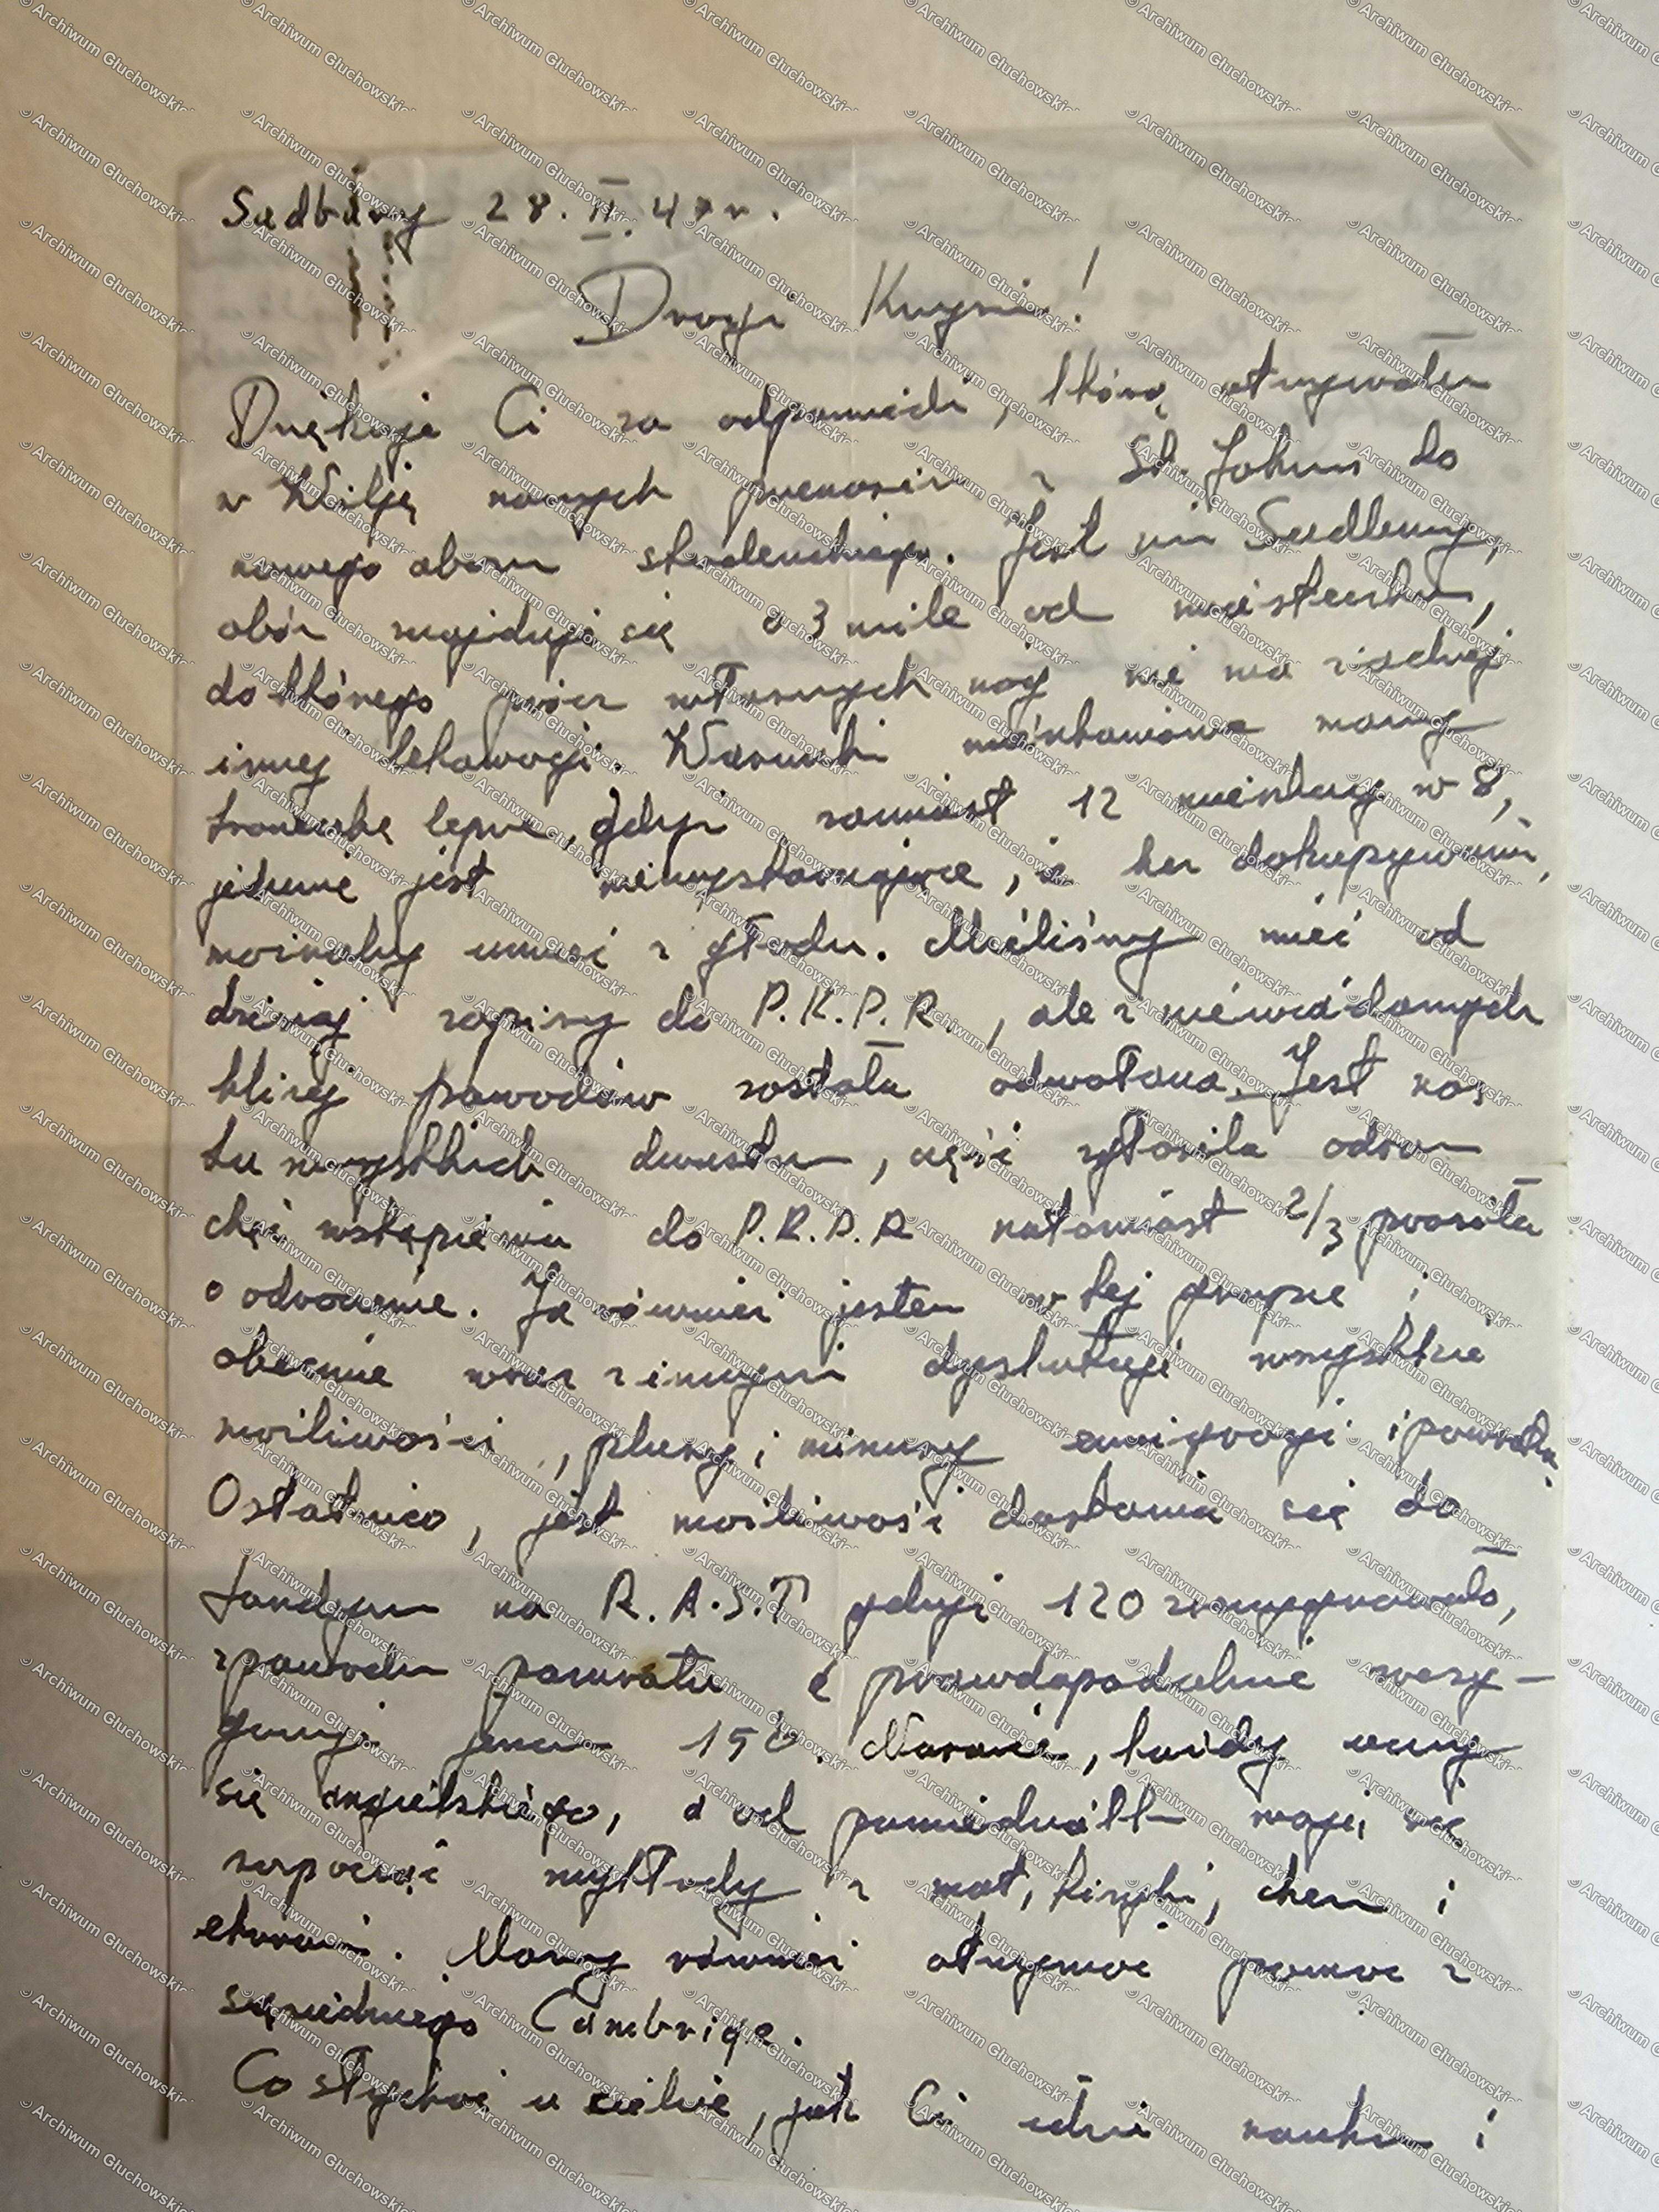 Sudbury 28.II.47r.
Droga Krysiu!
Dziękuję Ci za odpowiedź, którą otrzymałem
w Wilję naszych przenosin z St. Johns do
nowego obozu studenckiego. Jest nim Sudbury,
obóz znajduje się o 3 mile od miasteczka,
do którego prócz własnych nóg nie ma żadnej
innej lokomocji. Warunki mieszkaniowe mamy
troszeczkę lepsze, gdyż zamiast 12 mieszkamy w 8,
jedzenie jest niewystarczające, i bez dokupywania,
możnaby umrzeć z głodu. Mieliśmy mieć od
dzisiaj zapisy do P.K.P.R., ale z niewiadomych
bliżej powodów została odwołana. Jest nas
tu wszystkich dwustu, część zgłosiła odrazu
chęć wstąpienia do P.K.P.R natomiast 2/3 prosiła
o odroczenie. Ja również jestem w tej grupie i
obecnie wraz z innymi dyskutuję wszystkie
możliwości, plusy i minusy emigracji i powrotu.
Ostatnio, jest możliwość dostania się do
Londynu na R.A.S.T gdyż 120 zrezygnowało,
z powodu powrotu a prawdopodobnie zrezy-
gnuje jeszcze 150. Narazie, każdy uczy
się angielskiego, a od poniedziałku mają się
rozpocząć wykłady z mat, fizyki, chem i
ekonomi. Mamy również otrzymać pomoc z
sąsiedniego Cambrige.
Co słychać u ciebie, jak Ci idzie nauka i